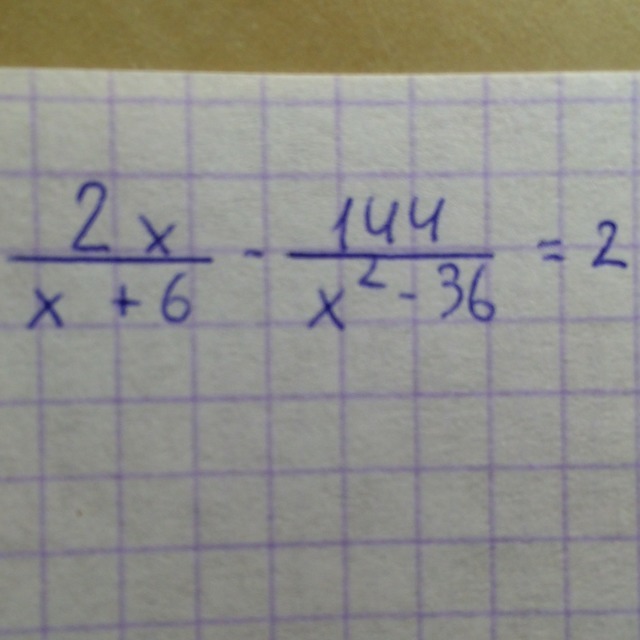 2x / (x + 6) - 144 / (x² - 36) = 2